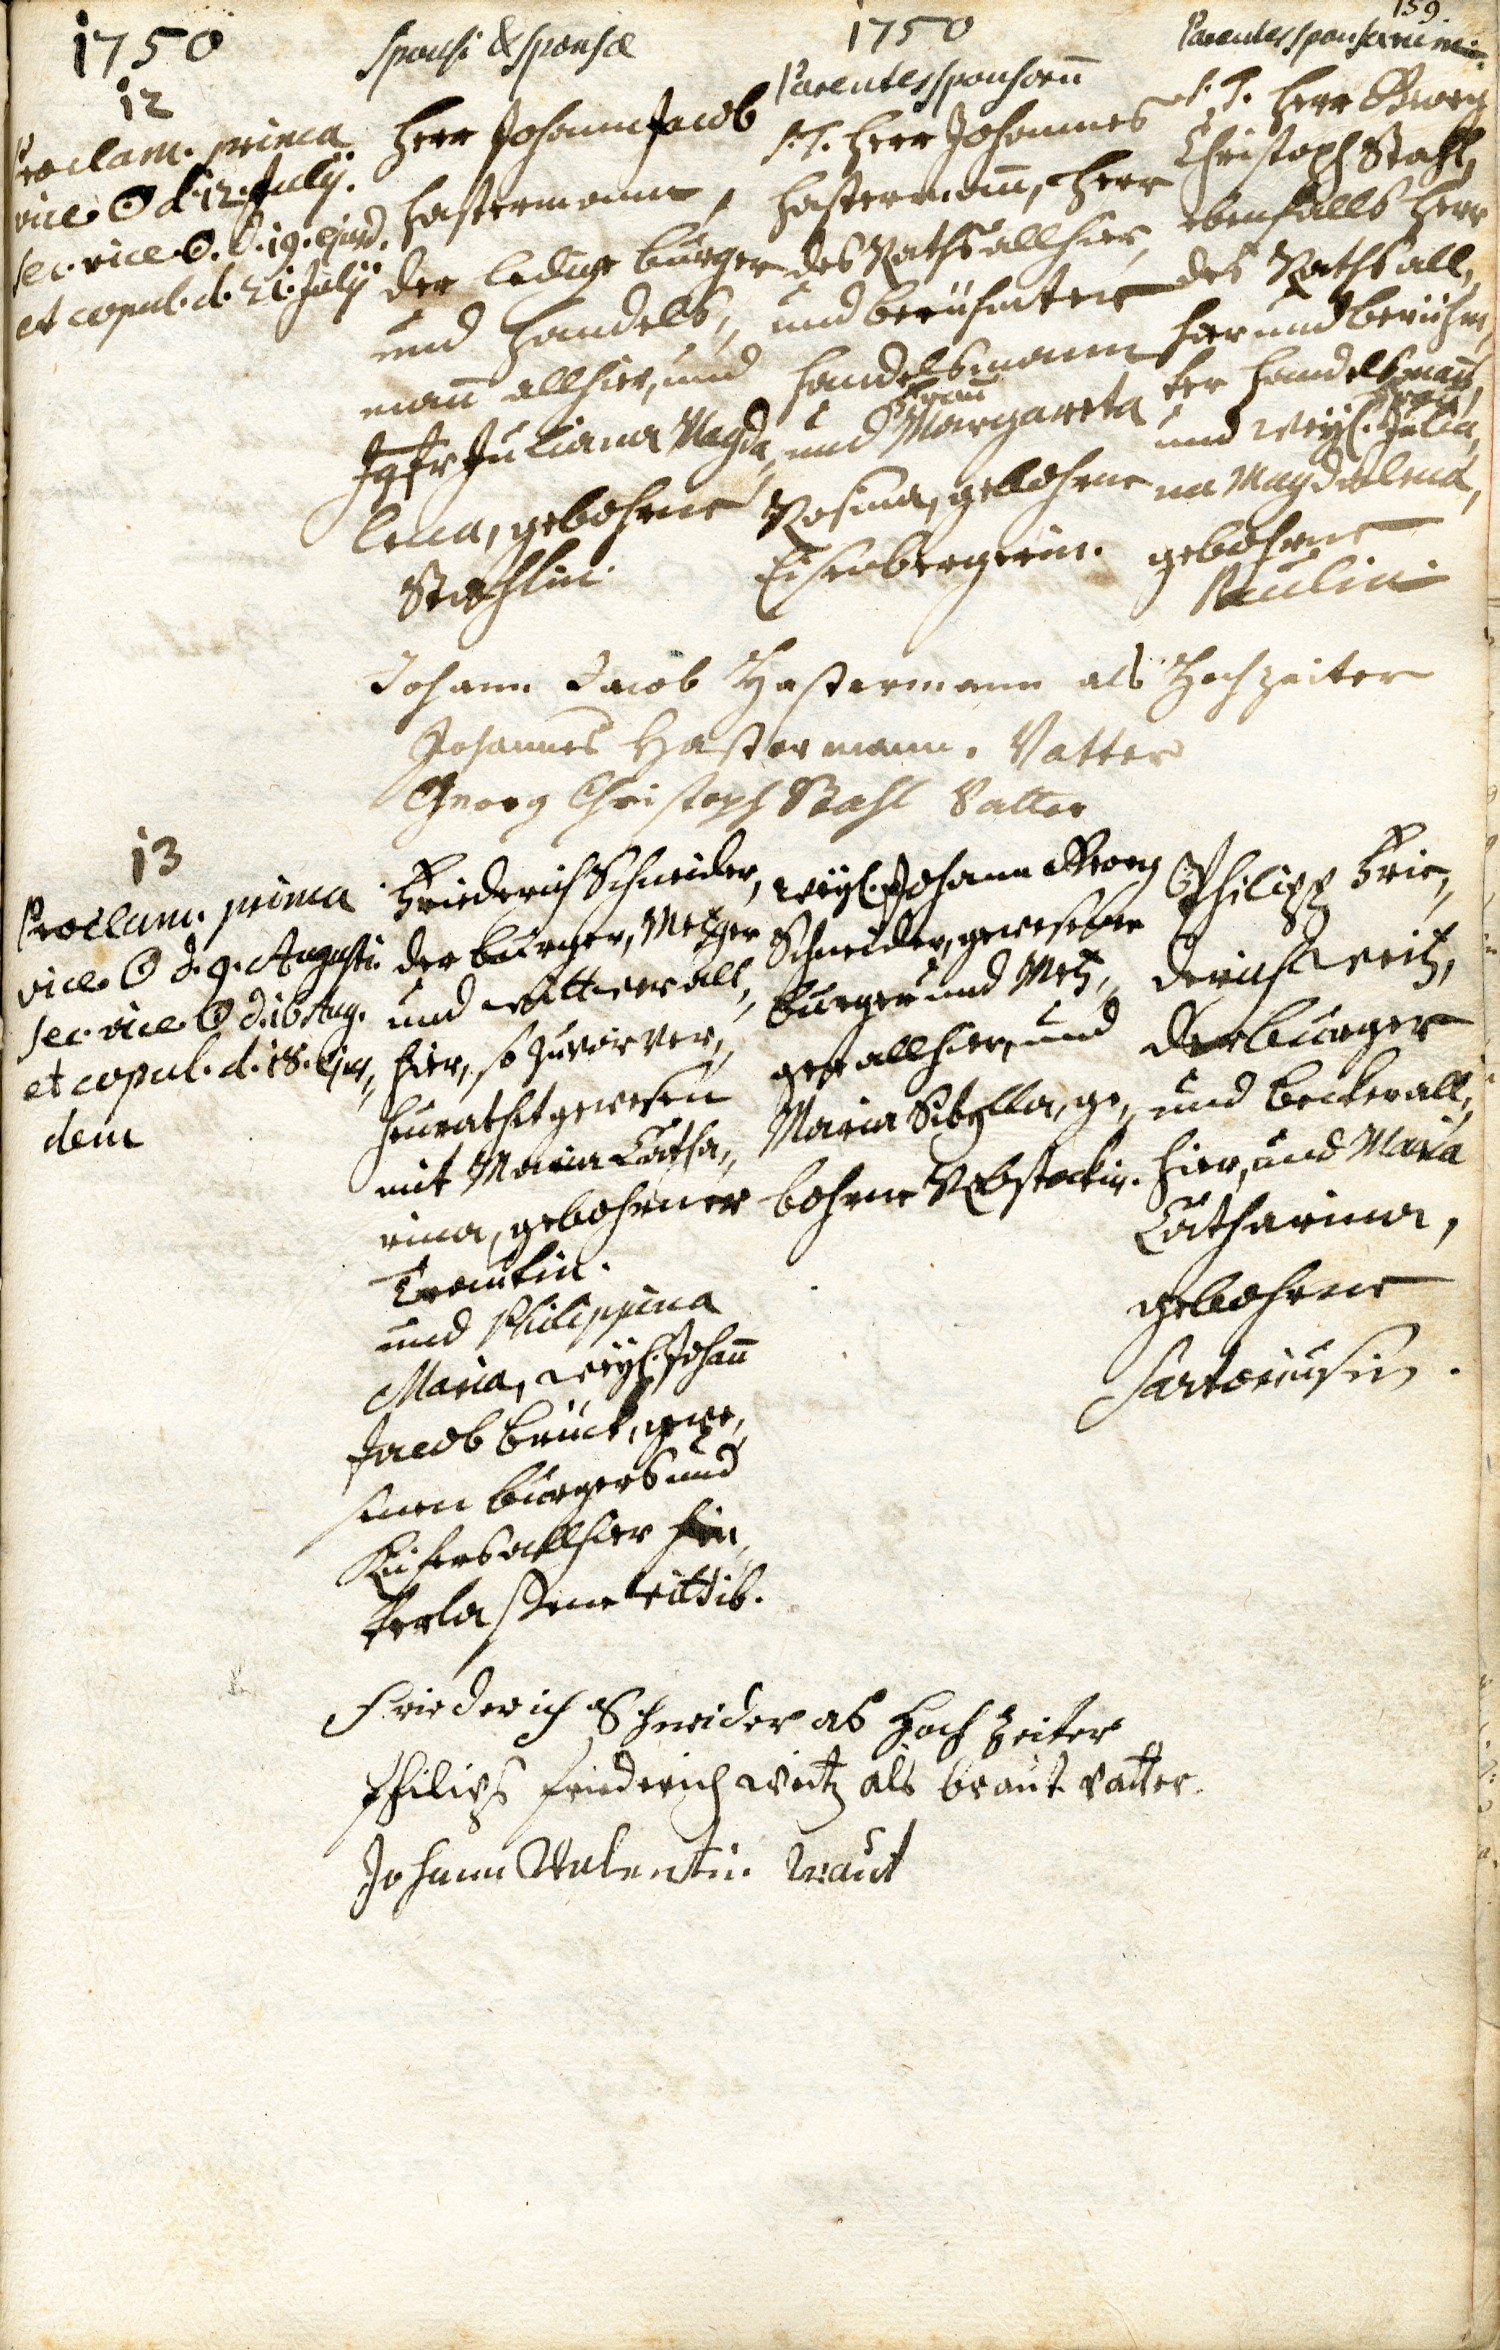 159.
1750
sponsi & sponsæ
1750
Parentes sponsorū
Parentes sponsarum.
12
Proclam. prima
vice ☉ d. 12. Julij.
sec. vice ☉. d. 19. ejusd.
et copul. d. 21. Julij
Herr Johann Jacob
Hastermann,
der ledige burger
und Handels,,
mañ allhier, und
Jgfr Juliana Magda,,
lena, gebohrne
Stahlin.
s. T. Herr Johannes
Hastermañ, Herr
des Raths allhier,
und berühmter
Handelsmann
und Frau Margareta
Rosina, gebohrne
Eisenbergerin.
s. T. Herr Georg
Christoph Stahl,
ebenfalls Herr
des Raths all,,
hier und berühm,,
ter Handelsmañ,
und weyl. Frau Julia,,
na Magdalena,
gebohrne
Paulin.
Johann Jacob Hastermann als Hochzeiter
Johannes Hastermann. Vatter
Georg Christoph Stahl Vatter
13
Proclam. prima
vice ☉ d. 9. Augusti.
sec. vice ☉ d. 16 Aug.
et copul. d. 18. ejus,,
dem
Friederich Schneider,
der burger, Metzger
und wittwer all,,
hier, so zuvor ver,,
heurathet gewesen
mit Maria Catha,,
rina, gebohrner
Trautin.
und Philippina
Maria, weyl. Johañ
Jacob Brück, gewe,,
senen burgers und
Küfers allhier hin,,
terlaßene wittib.
weyl. Johann Georg
Schneider, gewesener
burger und Metz,,
ger allhier, und
Maria Sibylla, ge,,
bohrne Rebstockin.
Philipp Frie,,
derich Weitz,
der burger
und becker all,,
hier, und Maria
Catharina,
gebohrne
Sartoriusin.
Friederich Schneider als Hoch zeiter
Philips friederich weitz als braut vatter.
Johann Valentin Traut